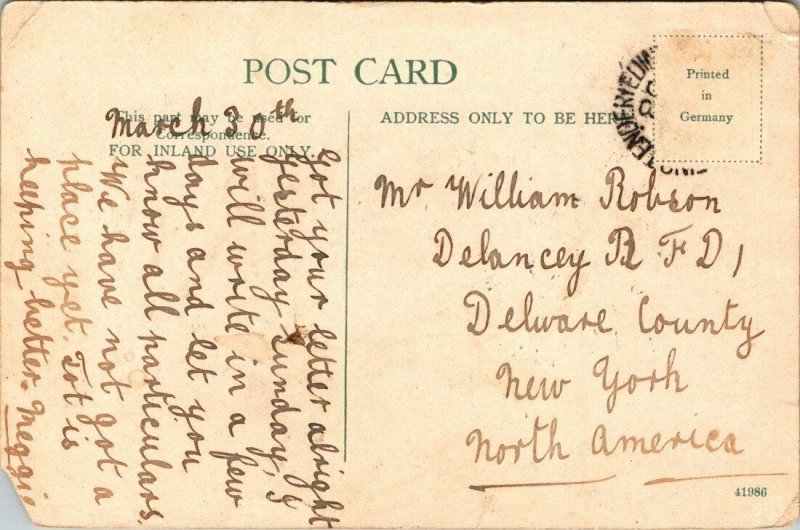 POST CARD
This part may be used for
Correspondence.
FOR INLAND USE ONLY.
March 30th
Got your letter alright
yesterday Sunday, I
will write in a few
days and let you
know all particulars.
We have not got a
place yet. Tot is
keeping better. Meggie
ADDRESS ONLY TO BE HER
Printed
in
Germany
Mr William Robson
Delancey R F D 1
Delware County
New York
North America
41986